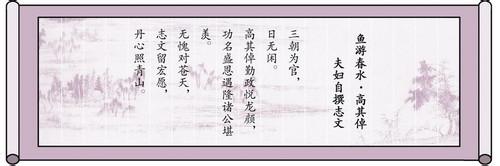 鱼游春水·高其倬
夫妇自撰志文
三朝为官，
日无闲。
高其倬勤政悦龙颜，
功名盛恩遇隆诸公堪
羡。
无愧对苍天，
志文留宏愿，
丹心照青山。